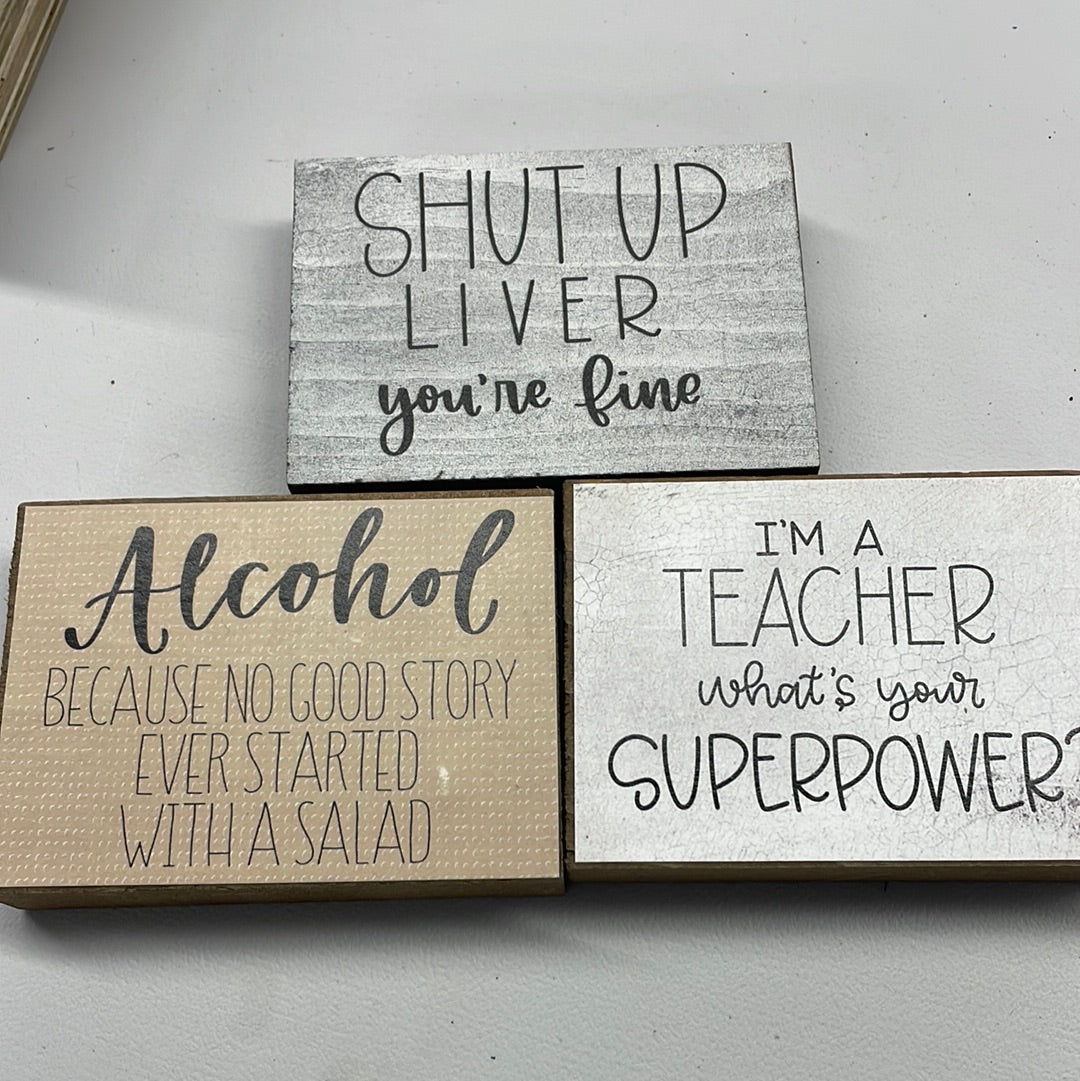 SHUT UP
LIVER
you're fine
Alcohol
BECAUSE NO GOOD STORY
EVER STARTED
WITH A SALAD
I'M A
TEACHER
what's your
SUPERPOWER?